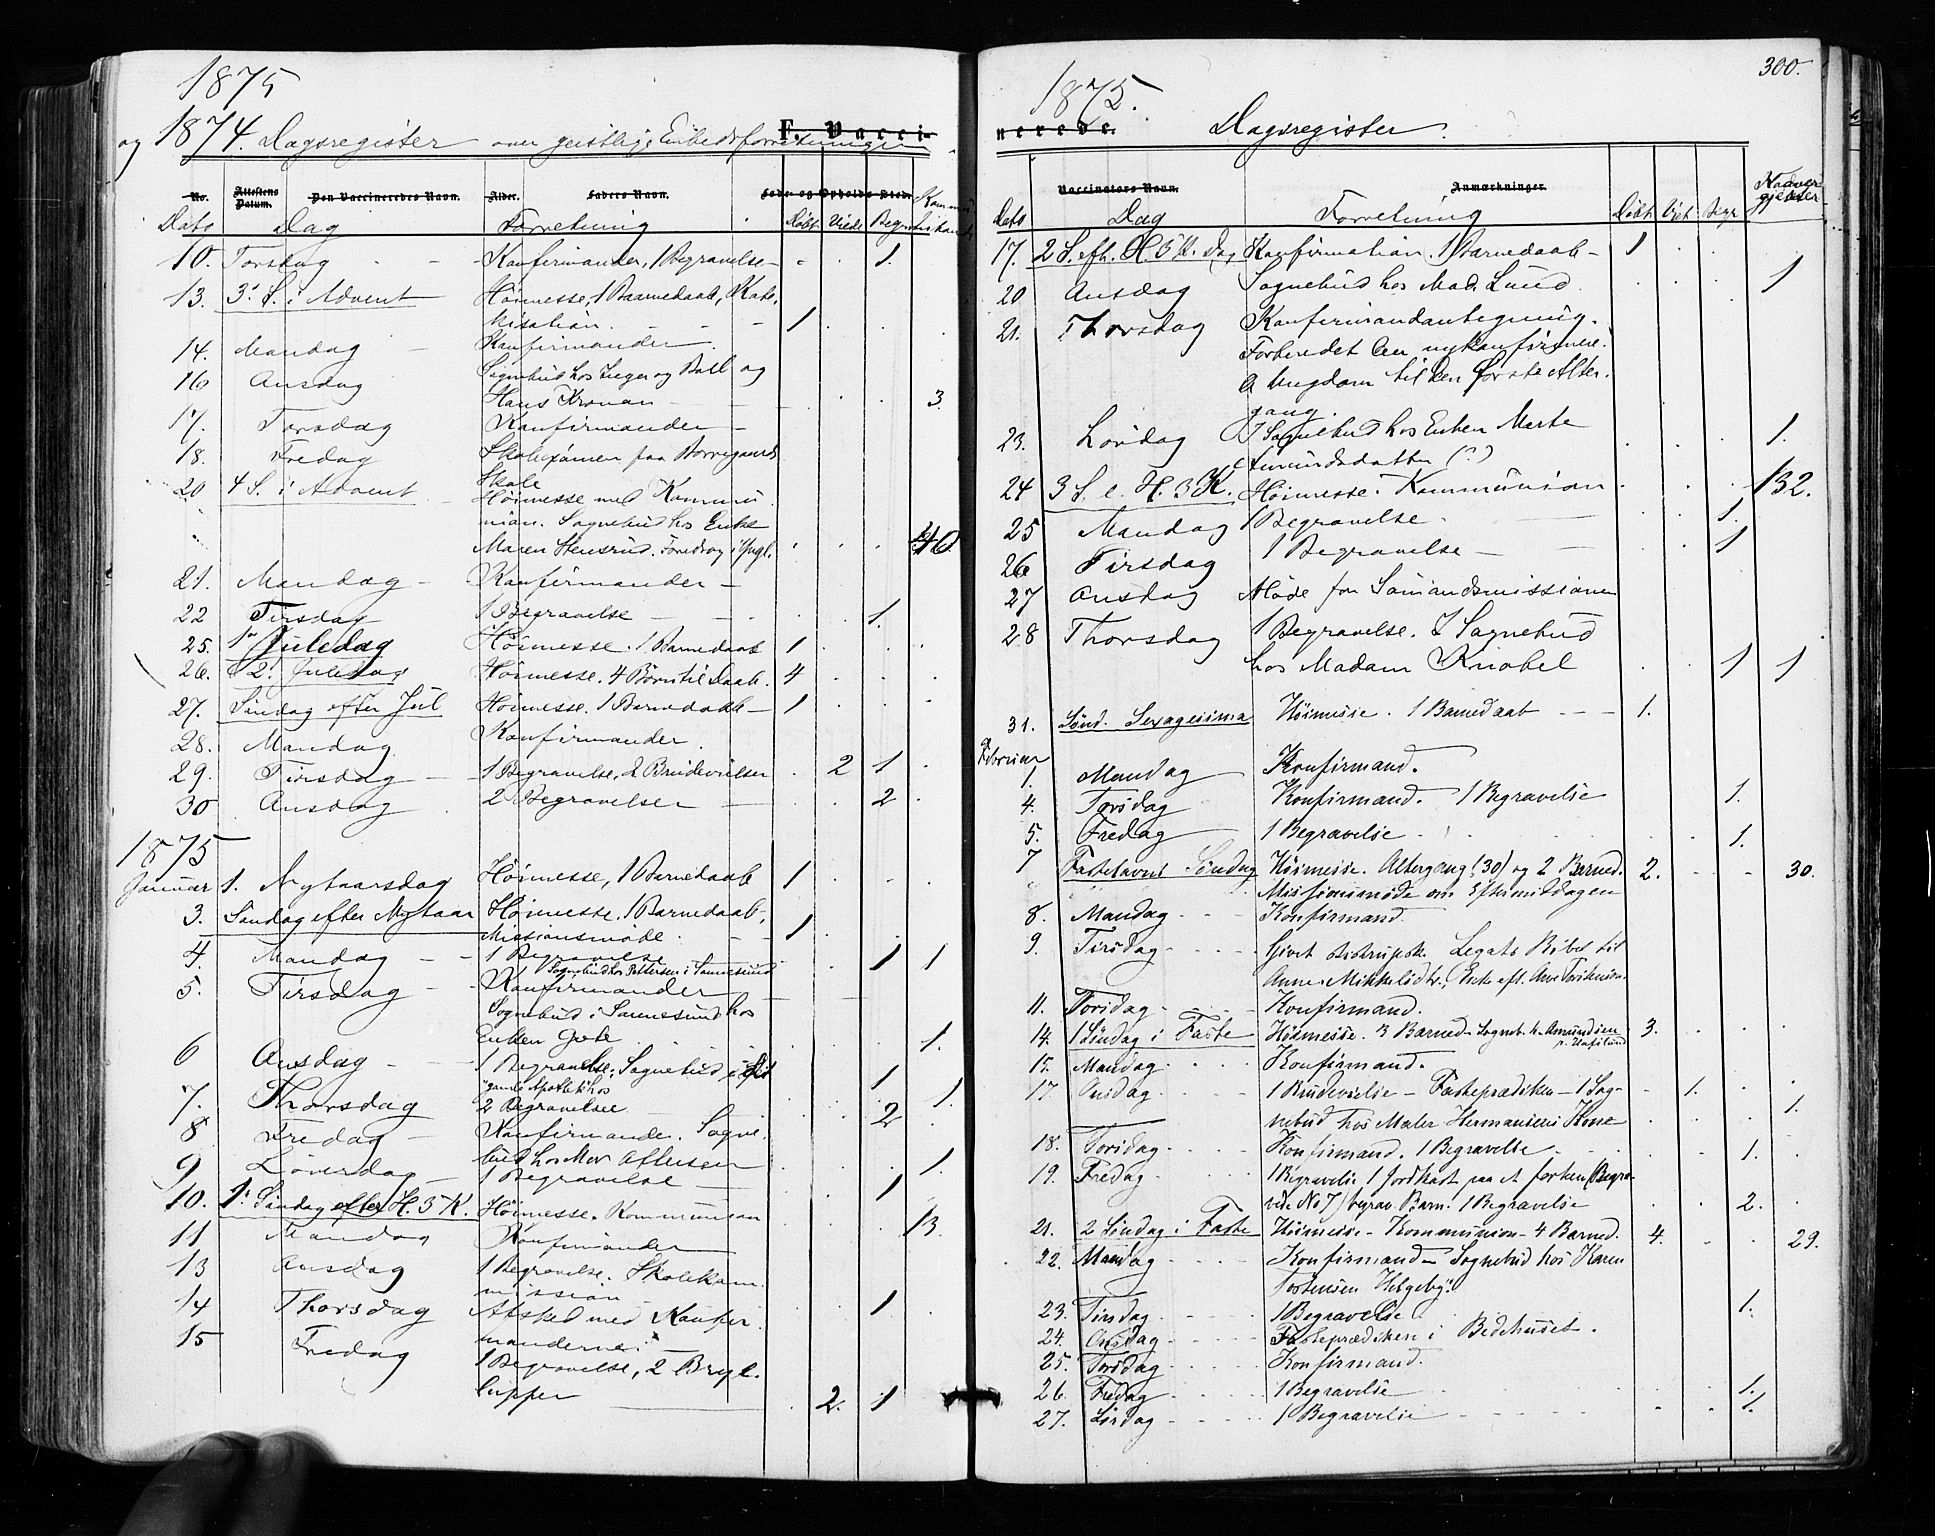 1875
og 1874. Dagsregister over geistlige Embedsforretninger
F. Vacci-
No. Attestens Datum. Den Vaccineredes Navn. Alder. Faders Navn. Føde- og Opholds-Sted.
Dato Dag Forretning Døbt Viede Begr.
10. Torsdag - - Konfirmander, 1 Begravelse - 1.
13. 3. S. i Advent Høimesse, 1 Barnedaab, Kate,
kisation. - - - 1
14. Mandag - Konfirmander.
16 Onsdag Sognebud hos og Boll og
Hans Kronan - - 3.
17. Torsdag Konfirmander -
18. Fredag Skoleexamen paa Borregaards
Skole
20 4 S. i Advent Høimesse med Kommu
nion. Sognebud hos Enke
Maren Stensrud. Foredrag i Yngl. 40
21. Mandag - Konfirmander -
22 Tirsdag 1 Begravelse - - 1.
25. 1ste Juledag Høimesse. 1 Barnedaab 1
26. 2. Juledag Høimesse. 4 Børn til Daab. 4
27. Søndag efter Jul Høimesse. 1 Barnedaab - 1
28. Mandag Konfirmander.
29. Tirsdag - 1 Begravelse, 2 Brudevielser 2 1
30 Onsdag 2 Begravelser - 2
1875
Januar 1. Nytaarsdag Høimesse, 1 Barnedaab 1
3. Søndag efter Nytaar Høimesse. 1 Barnedaab,
Missionsmøde. - - 1
4. Mandag - - 1 Begravelse
1 Sognebud hos Pettersen i Sannesund 1 1
5. Tirsdag - Konfirmander
Sognebud i Sannesund hos
Enken Grøte 1.
6 Onsdag - 1 Begravelse. Sognebud i det
gamle Apothek hos 1
7. Thorsdag 2 Begravelser 2 1.
8 Fredag - Konfirmander. Sogne-
bud hos Mor Ottersen 1.
9 Løverdag - 1 Begravelse - 1
10. 1. Søndag efter H. 3 K. Høimesse. Kommunion 13.
11 Mandag Konfirmander
13 Onsdag 1 Begravelse. Skolekom
mission - 1
14 Thorsdag Afsked med Konfir
manderne. -
15 Fredag 1 Begravelse, 2 Bryl.
lupper 2. 1
300.
1875.
nerede.
Dagsregister.
Vaccinators Navn. Anmærkninger.
Dato Dag Forretning Døbt Viet Begr. Nadver
gjæster
17. 2 S. eft. H. 3 K. dag Konfirmation. 1 Barnedaab - 1
20 Onsdag Sognebud hos Mad. Lund 1
21. Thorsdag Konfirmandantegning.
Forberedet den nykonfirmere.
de Ungdom til den første Alter.
gang.
23. Lørdag 1 Sognebud hos Enken Marte
Amundsdatter (?) 1.
24 3 S. e. H. 3 K. Høimesse. Kommunion 132.
25 Mandag 1 Begravelse - 1.
26 Tirsdag 1 Begravelse - 1
27 Onsdag Møde for Sømandsmissionen
28 Thorsdag 1 Begravelse. 1 Sognebud
hos Madam Knobel 1 1
31. Sønd. Sexagesima Høimesse. 1 Barnedaab - - 1.
Februar
1. Mandag Konfirmand.
4. Torsdag Konfirmand. 1 Begravelse 1.
5. Fredag 1 Begravelse 1.
7 Fastelavns Søndag Høimesse. Altergang (30) og 2 Barned. 2. - - 30.
Missionsmøde om Eftermiddagen
8. Mandag - - Konfirmand.
9. Tirsdag - - - Givet Legats Bibel til
Anne Mikkelsdtr., Enke eft.
11. Torsdag - - - Konfirmand.
14. 1 Søndag i Faste Høimesse. 3 Barned. Sogneb. h. Amundsen 3.
15. Mandag - - - Konfirmand.
17. Onsdag - - - 1 Brudevielse - Fasteprædiken - 1 Sog- 1.
nebud hos Maler Hermansens Kone 1.
18. Torsdag - - - Konfirmand. 1 Begravelse 1.
19. Fredag - - 1 Begravelse 1 Jordkast paa et forhen (Begra-
vede No 7) begrav. Barn. 1 Begravelse 2.
21. 2 Søndag i Faste Høimesse - Kommunion - 4 Barned. 4. - 29.
22. Mandag - - - Konfirmand - Sognebud hos Karen
Torstensen Helgeby.
23. Tirsdag - - - 1 Begravelse 1.
24. Onsdag - - - Fasteprædiken i Bedehuset.
25. Torsdag - - - Konfirmand.
26. Fredag - - - 1 Begravelse 1.
27. Lørdag - - - 1 Begravelse 1.